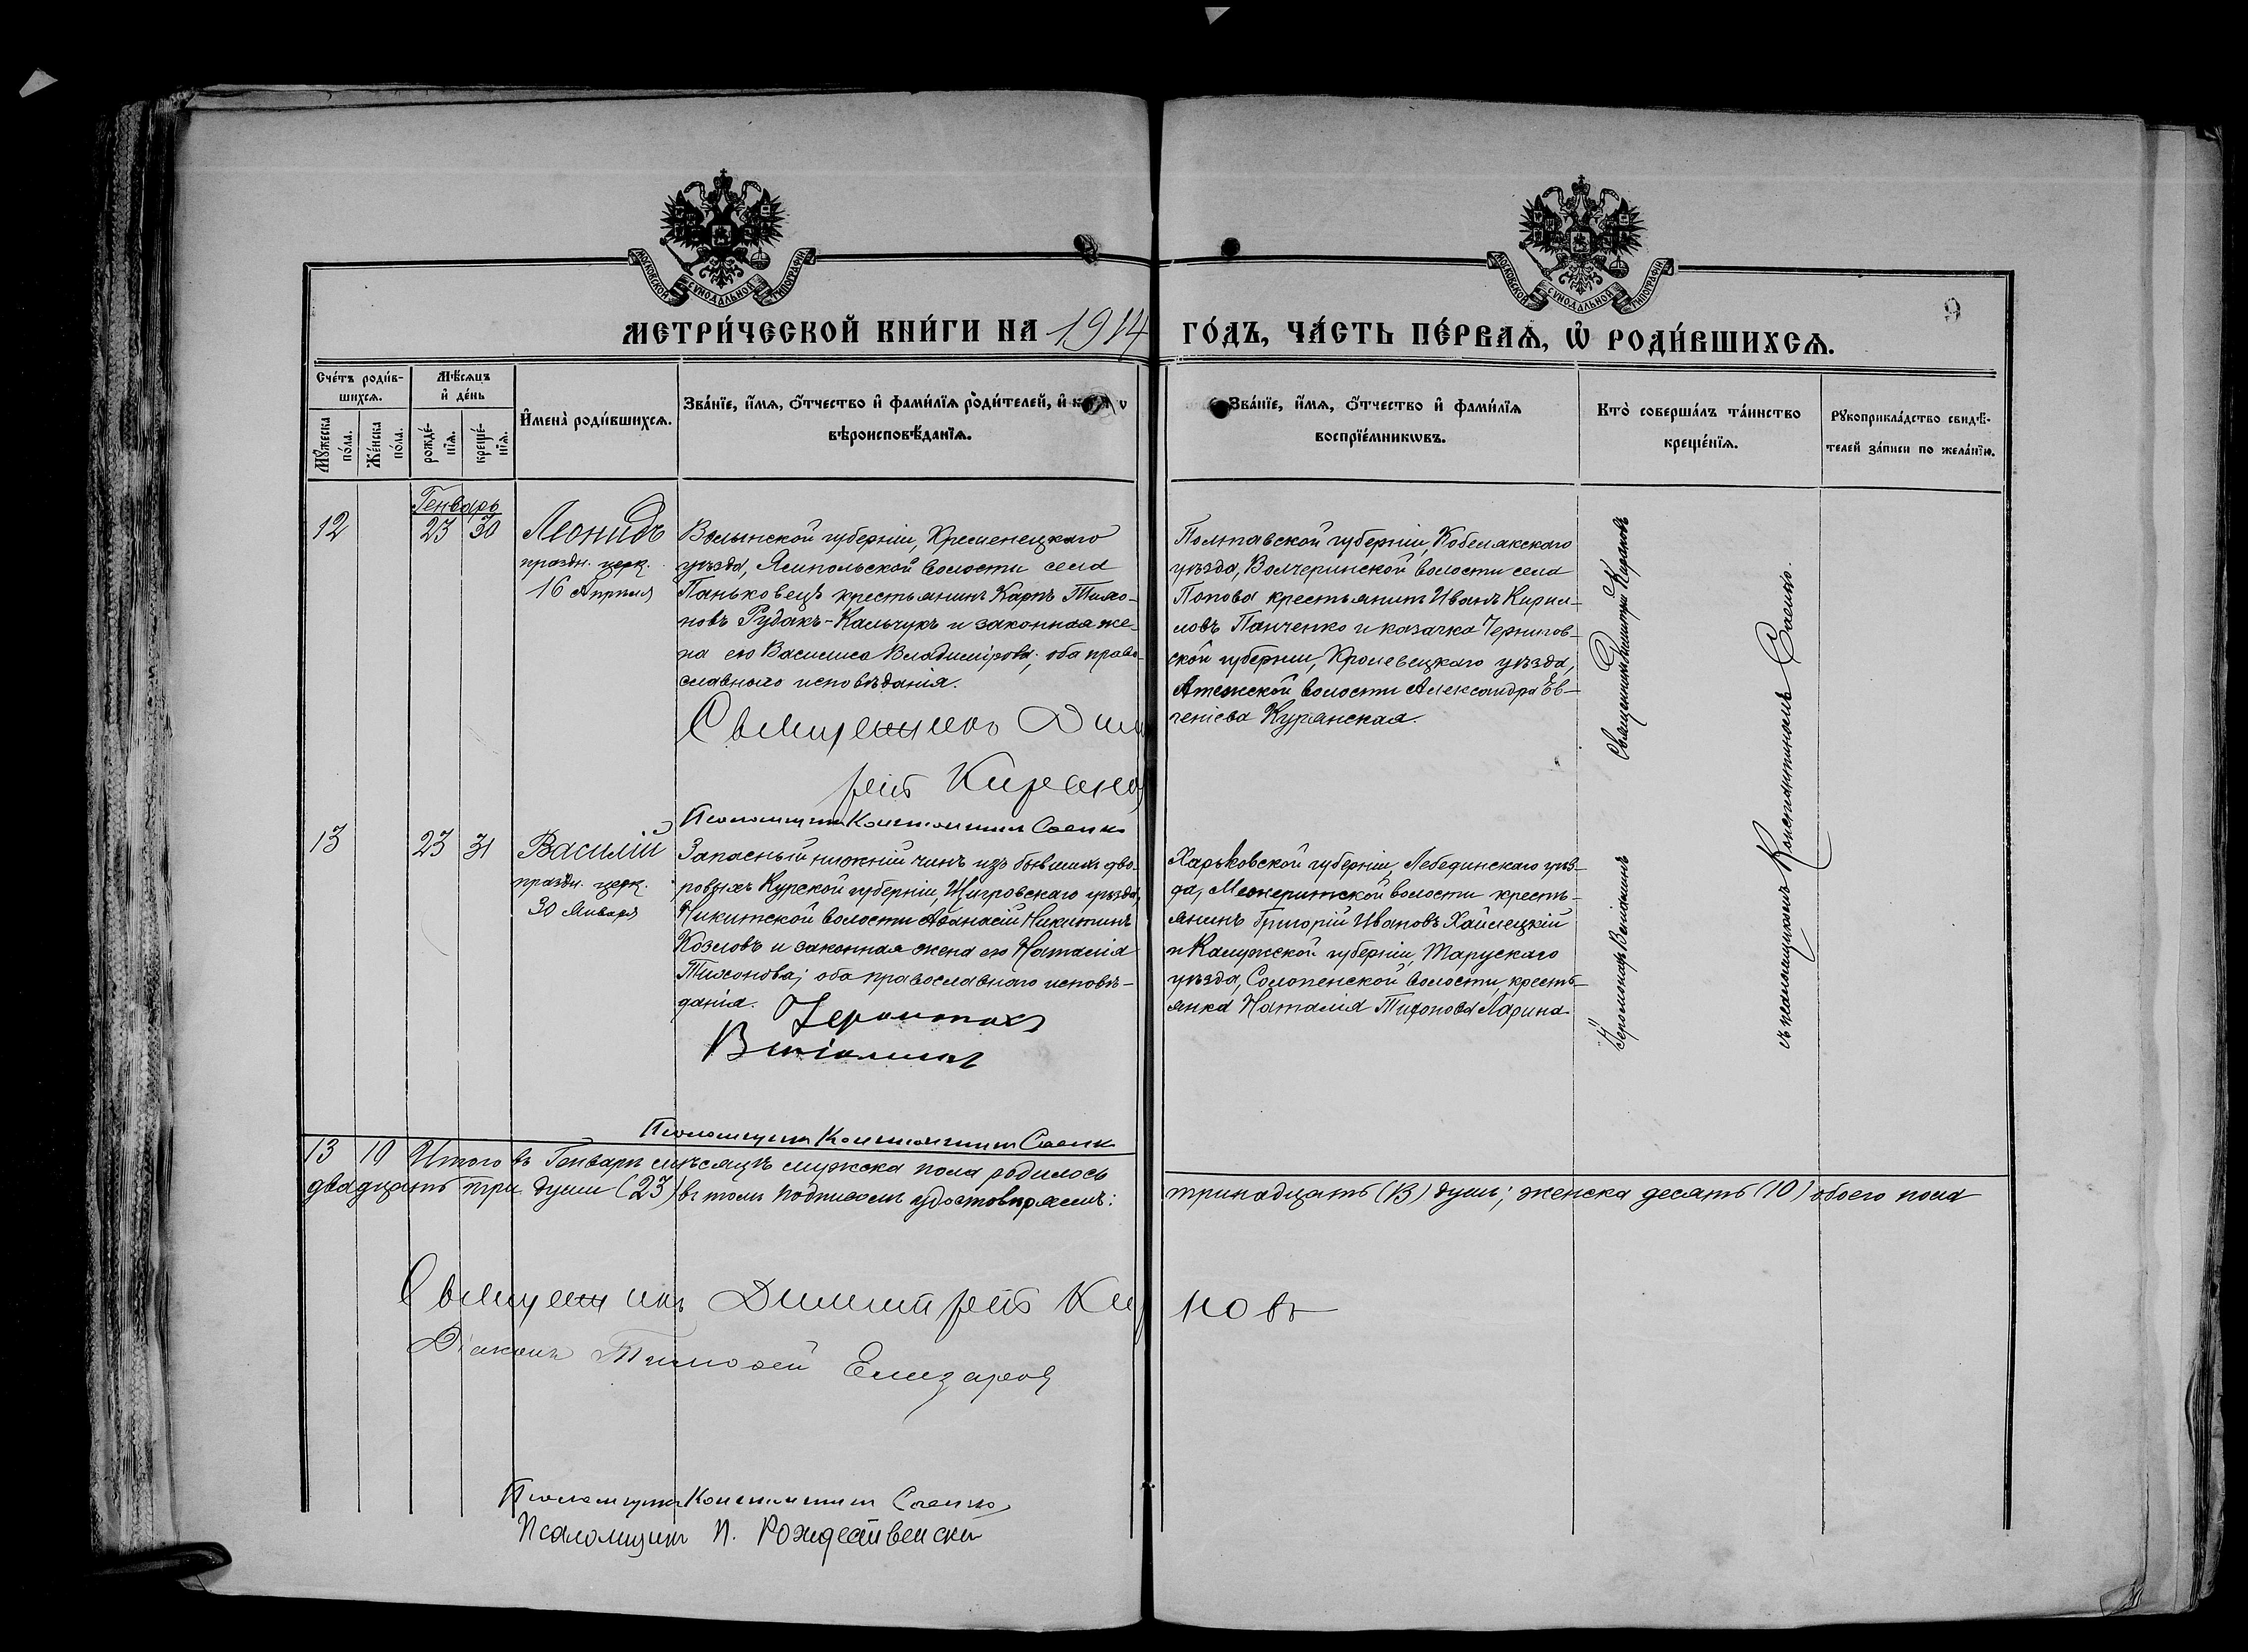 МОСКОВСКОЙ СѴНОДАЛЬНОЙ ТИПОГРАФІИ
МОСКОВСКОЙ СѴНОДАЛЬНОЙ ТИПОГРАФІИ
9
МЕТРИ́ЧЕСКОЙ КНИ́ГИ НА 1914 ГО́ДЪ, ЧА́СТЬ ПЕ́РВАѦ, Ѡ҆ РОДИ́ВШИХСѦ.
Сче́тъ роди́в-
шихсѧ.
Мꙋ́жеска по́ла.
Же́нска по́ла.
Мѣ́сѧцъ
и҆ де́нь
рожде́-
нїѧ.
креще́-
нїѧ.
И҆мена̀ роди́вшихсѧ.
Зва́нїе, и҆́мѧ, ѻ҆́тчество и҆ фами́лїѧ роди́телей, и҆
вѣроисповѣ́данїѧ.
Зва́нїе, и҆́мѧ, ѻ҆́тчество и҆ фами́лїѧ
воспрїе́мникωвъ.
Кто̀ соверша́лъ та́инство
креще́нїѧ.
Рꙋкоприкла́дство свидѣ́-
телей за́писи по жела́нїю.
Генварь
12
23
30
Леонидъ
праздн. церк.
16 Апрѣля
Волынской губерніи, Кременецкаго
уѣзда, Ямпольской волости села
Паньковецъ крестьянинъ Карпъ Тимо-
новъ Рудакъ-Кальчукъ и законная же-
на его Василиса Владимірова; оба право-
славнаго исповѣданія.
Священникъ Дим
рій Кирано
Псаломщикъ Константинъ Саенко
Полтавской губерніи, Кобелякскаго
уѣзда, Волчеринской волости села
Попова крестьянинъ Иванъ Кирил-
ловъ Панченко и казачка Чернигов-
ской губерніи, Кролевецкаго уѣзда,
волости Александра Ев-
геніева Курянская.
Священникъ Димитрій Кирановъ
съ псаломщикомъ Константиномъ Саенко.
13
23
31
Василій
праздн. церк.
30 Января
Запасный нижній чинъ изъ бывшихъ дво-
ровыхъ Курской губерніи, Щигровскаго уѣзда,
Никитской волости Аѳанасій Никитинъ
Козловъ и законная жена его Наталія
Тихонова; оба православнаго исповѣ-
данія.
Іеромонахъ
Веніаминъ
Псаломщикъ Константинъ Саенк
Харьковской губерніи, Лебединскаго уѣз-
да, Межеричской волости кресть-
янинъ Григорій Ивановъ Хайлецкій
и Калужской губерніи, Тарускаго
уѣзда, Солопенской волости, кресть-
янка Наталія Тихонова Ларина.
Іеромонахъ Веніаминъ
13 10 Итого въ Генварѣ мѣсяцѣ мужска пола родилось
тринадцать (13) душъ; женска десять (10) обоего пола
двадцать три души (23) въ томъ подписомъ удостовѣряемъ:
Священникъ Димитрій Ки новъ
Діаконъ Тимоѳей Елизаров
Псаломщикъ Константинъ Саенко
Псаломщикъ П. Рождественскій